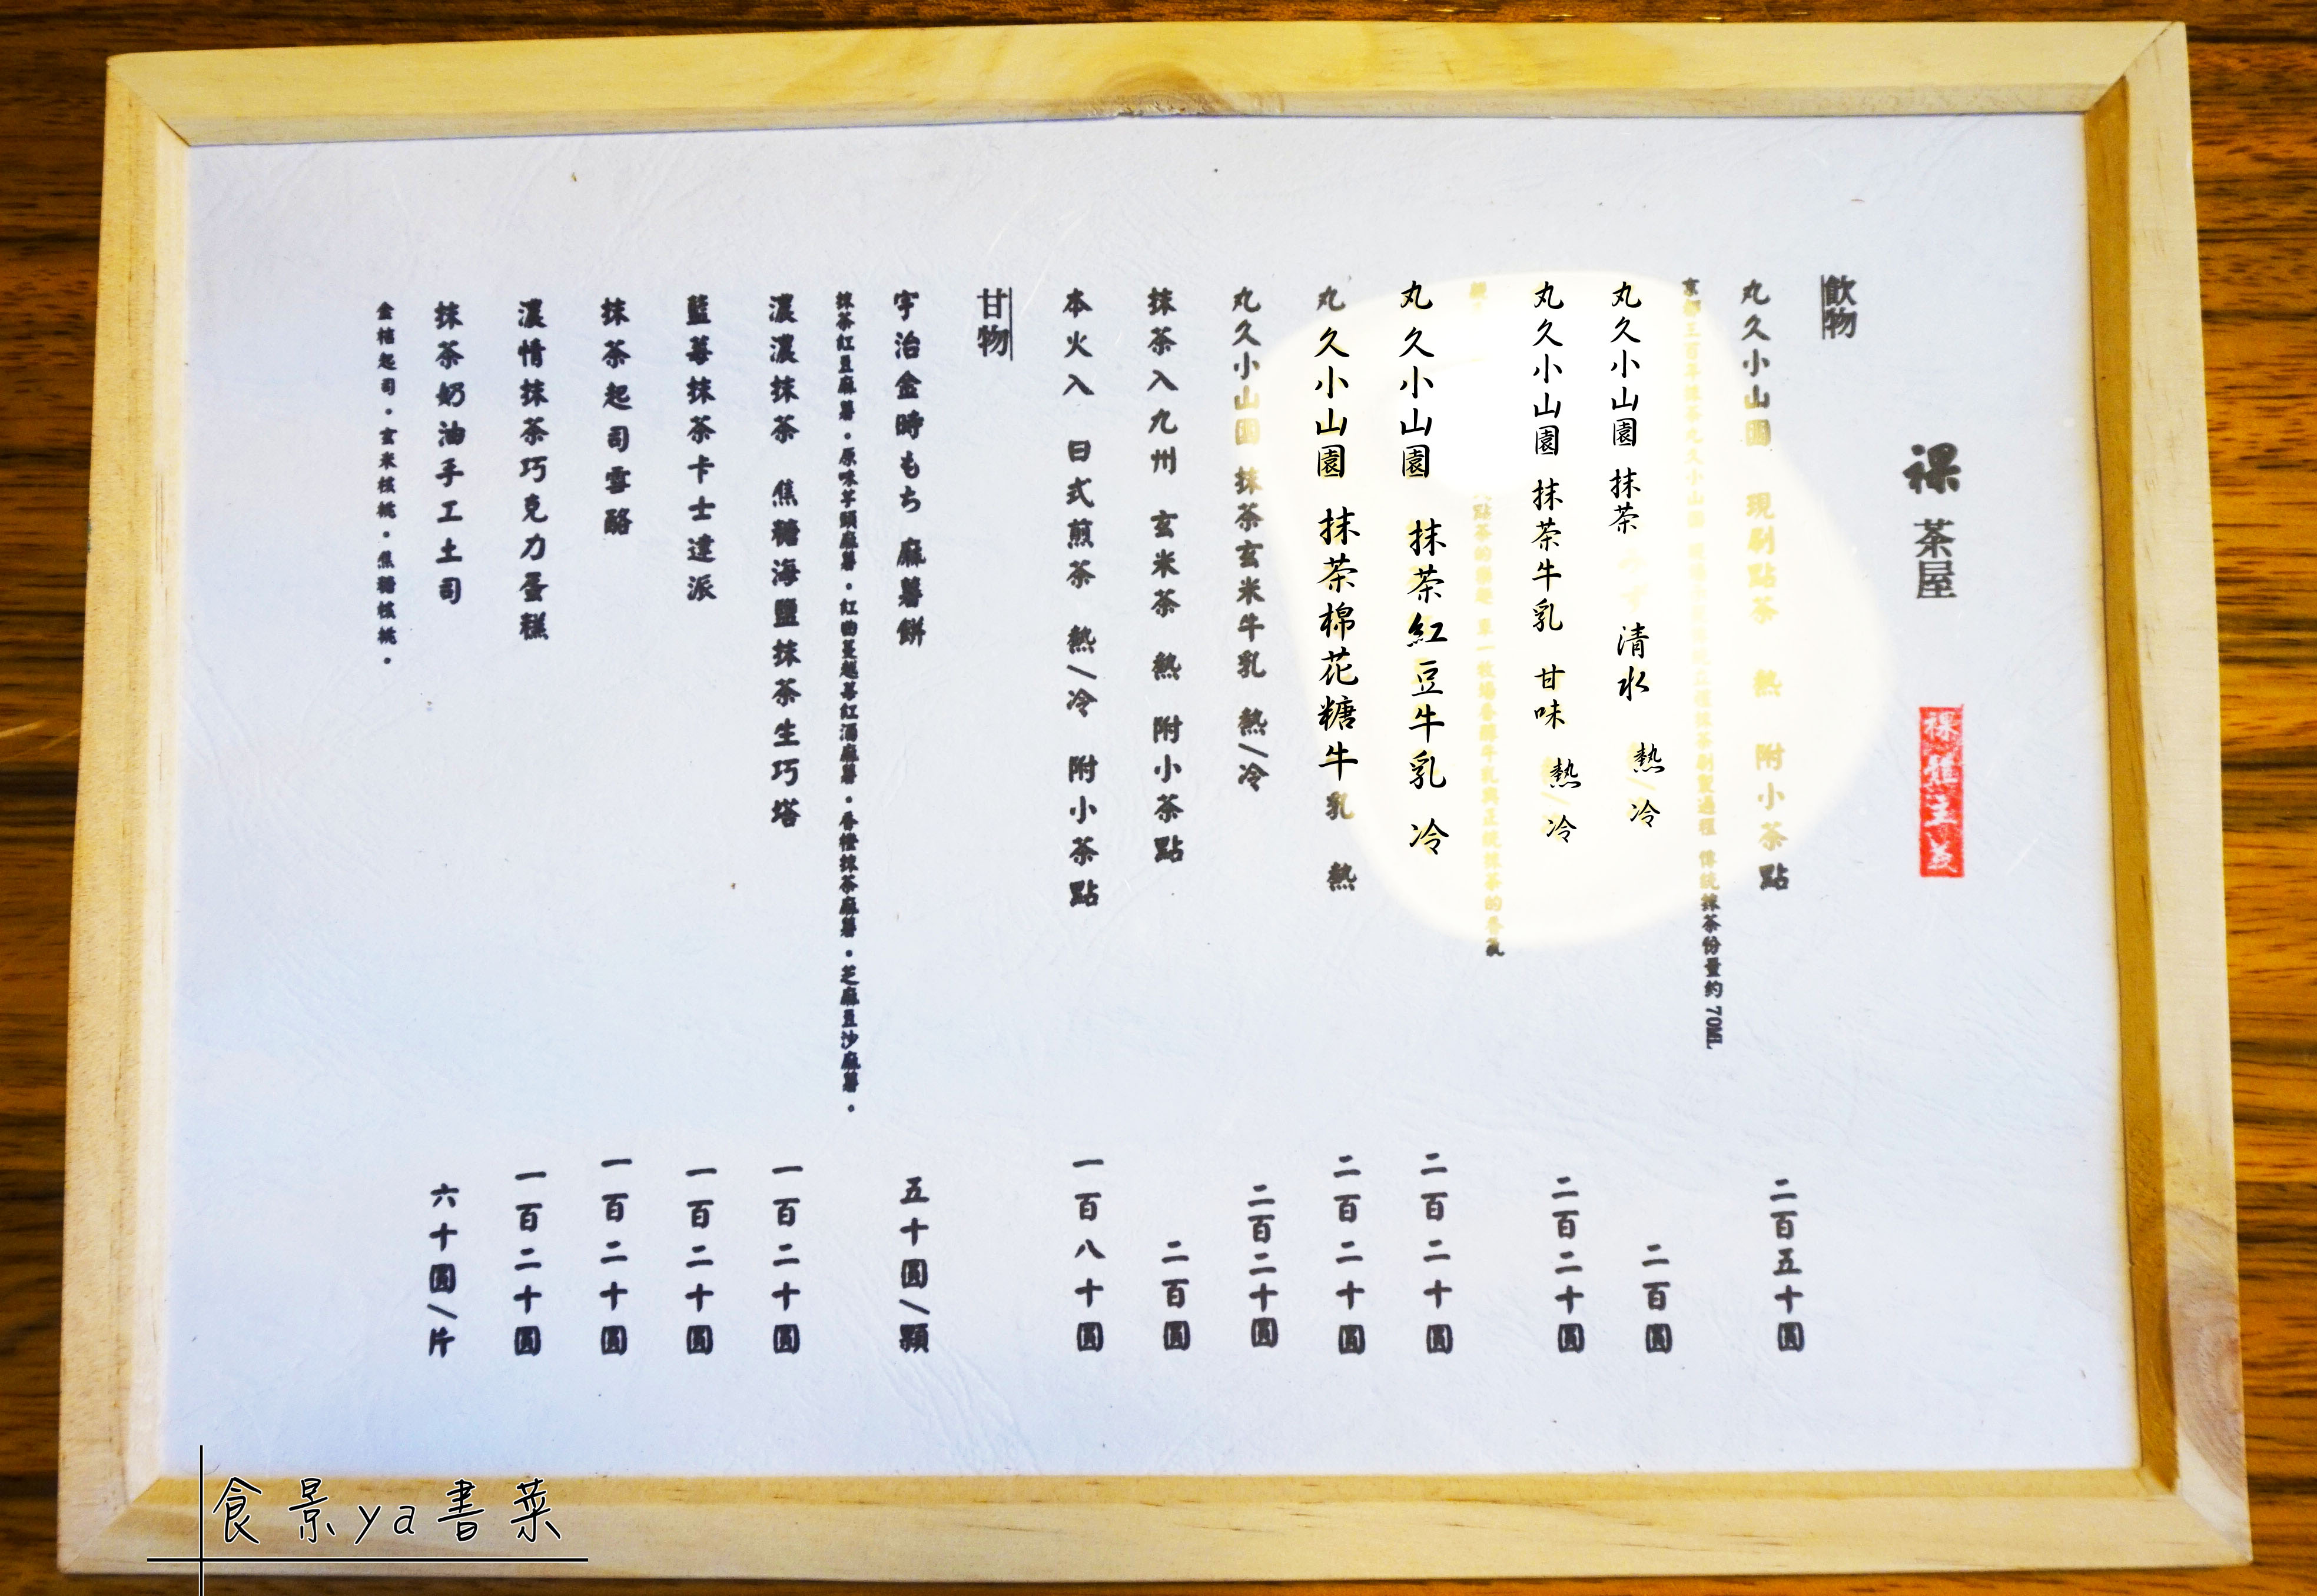 裸 茶屋
裸體主義
飲物
丸久小山園 現刷點茶 熱 附小茶點 二百五十圓
京都三百年抹茶丸久小山園 傳統抹茶份量約 70ML
丸久小山園 抹茶 清水 熱/冷 二百圓
丸久小山園 抹茶牛乳 甘味 熱/冷 二百二十圓
點茶的樂趣 單一牧場香醇牛乳與正統抹茶的香氣
丸久小山園 抹茶紅豆牛乳 冷 二百二十圓
丸久小山園 抹茶棉花糖牛乳 熱 二百二十圓
丸久小山園 抹茶玄米牛乳 熱/冷 二百二十圓
抹茶入九州 玄米茶 熱 附小茶點 二百圓
本火入 日式煎茶 熱/冷 附小茶點 一百八十圓
甘物
宇治金時もち 麻薯餅 五十圓/顆
抹茶紅豆麻薯。原味芋頭麻薯。紅曲蔓越莓紅酒麻薯。香橙抹茶麻薯。芝麻豆沙麻薯。
濃濃抹茶 焦糖海鹽抹茶生巧塔 一百二十圓
藍莓抹茶卡士達派 一百二十圓
抹茶起司雪酪 一百二十圓
濃情抹茶巧克力蛋糕 一百二十圓
抹茶奶油手工土司 六十圓/片
金桔起司。玄米核桃。焦糖核桃。
食景ya書菜